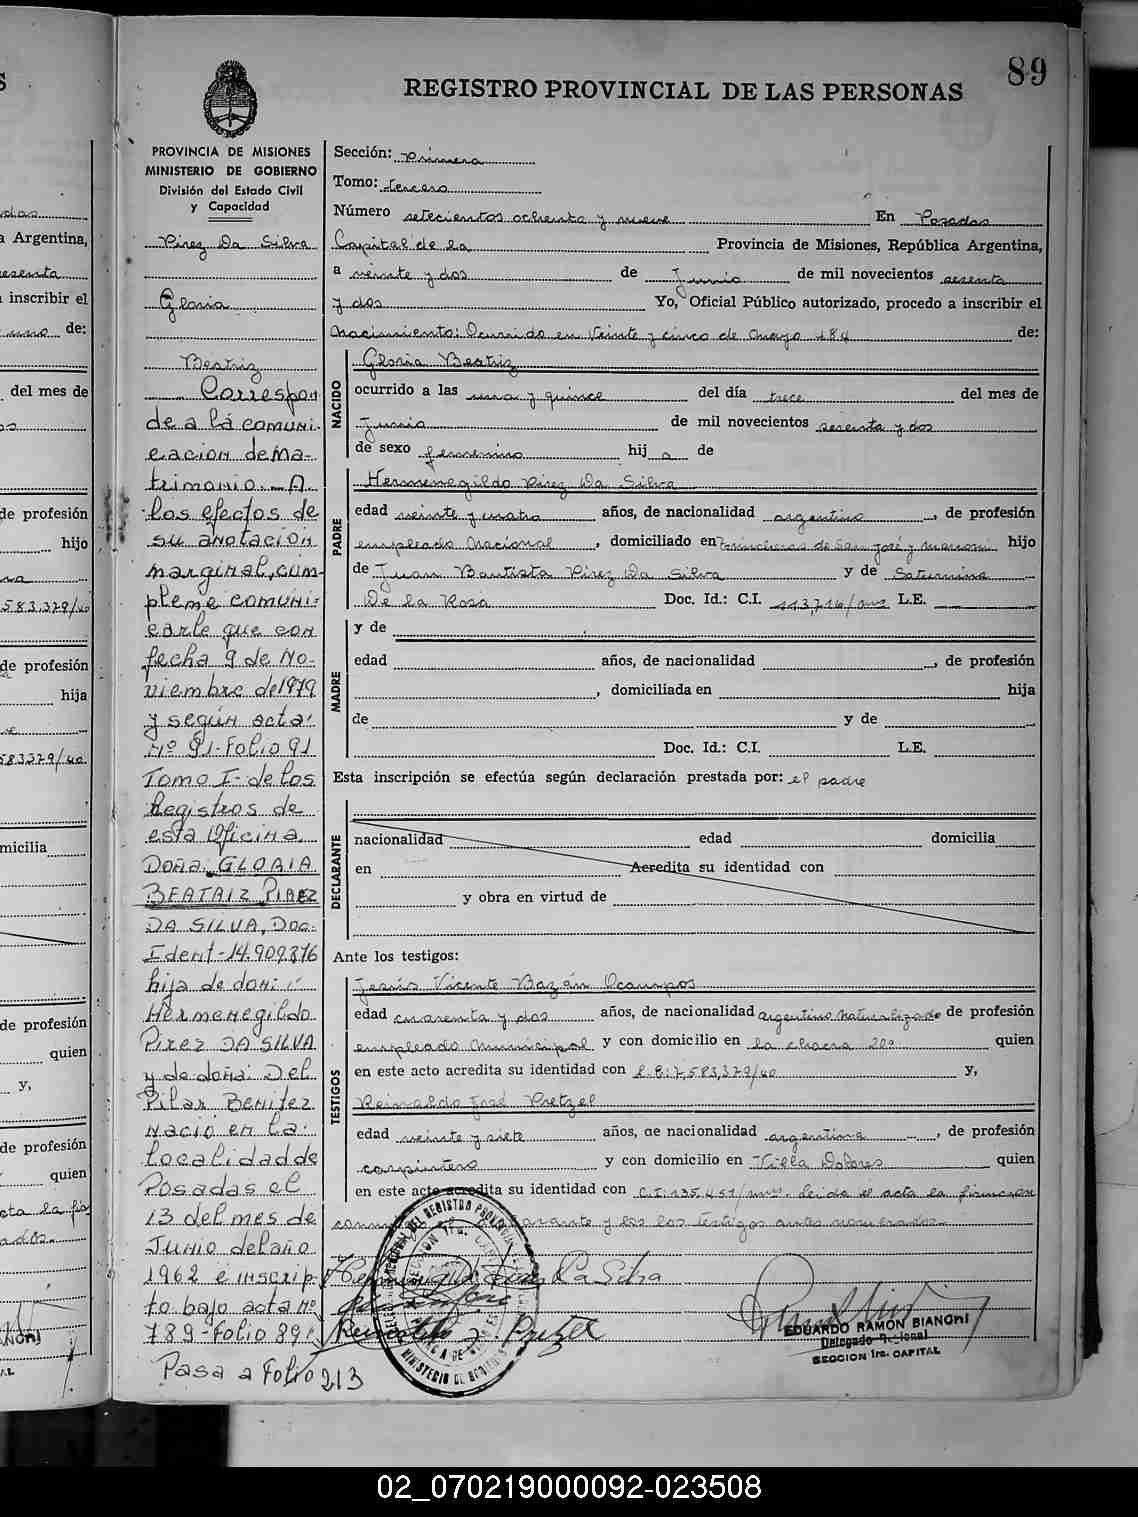 89
REGISTRO PROVINCIAL DE LAS PERSONAS
PROVINCIA DE MISIONES
MINISTERIO DE GOBIERNO
División del Estado Civil
y Capacidad
Pirez Da Silva
Gloria
Beatriz
Correspon
de a la comuni-
cacion de Ma-
trimonio. A
los efectos de
su anotación
marginal, cum-
pleme comuni-
carle que con
fecha 9 de No-
viembre de 1979
y según acta:
Nº 91-Folio 91
Tomo I- de los
Registros de
esta Oficina.
Doña: GLORIA
BEATRIZ PIREZ
DA SILVA, Doc.
Ident-14.909.876
hija de don:
Hermenegildo
Pirez DA SILVA
y de doña: Del
Pilar Benitez
Nacio en la
localidad de
Posadas el
13 del mes de
Junio del año
1962 e inscrip-
to bajo acta Nº
789-Folio 89.
Pasa a Folio 213
Sección: Primera
Tomo: tercero
Número setecientos ochenta y nueve En Posadas
Capital de la Provincia de Misiones, República Argentina,
a veinte y dos de Junio de mil novecientos sesenta
y dos Yo, Oficial Público autorizado, procedo a inscribir el
Nacimiento: Ocurrido en Veinte y cinco de Mayo 484 de:
NACIDO
Gloria Beatriz
ocurrido a las una y quince del día trece del mes de
Junio de mil novecientos sesenta y dos
de sexo femenino hij a de
PADRE
Hermenegildo Pirez Da Silva
edad veinte y cuatro años, de nacionalidad argentino, de profesión
empleado Nacional, domiciliado en Trincheras de San José y Marconi hijo
de Juan Bautista Pirez Da Silva y de Saturnina
De la Rosa Doc. Id.: C.I. 113,716/ L.E.
MADRE
y de
edad años, de nacionalidad , de profesión
, domiciliada en hija
de y de
Doc. Id.: C.I. L.E.
Esta inscripción se efectúa según declaración prestada por: el padre
DECLARANTE
nacionalidad edad domicilia
en Acredita su identidad con
y obra en virtud de
Ante los testigos:
TESTIGOS
Jesús Vicente Bazán Ocampos
edad cuarenta y dos años, de nacionalidad argentino Naturalizado de profesión
empleado Municipal y con domicilio en la chacra quien
en este acto acredita su identidad con L.E:7,583,379/40 y,
Reinaldo José Pretzel
edad veinte y siete años, de nacionalidad argentina, de profesión
carpintero y con domicilio en Villa Dolores quien
en este acto acredita su identidad con C.I:135,451/ leida el acta la firman
y los testigos antes nombrados.
EDUARDO RAMON BIANCHI
Delegado
SECCION 1ra. CAPITAL
02_070219000092-023508